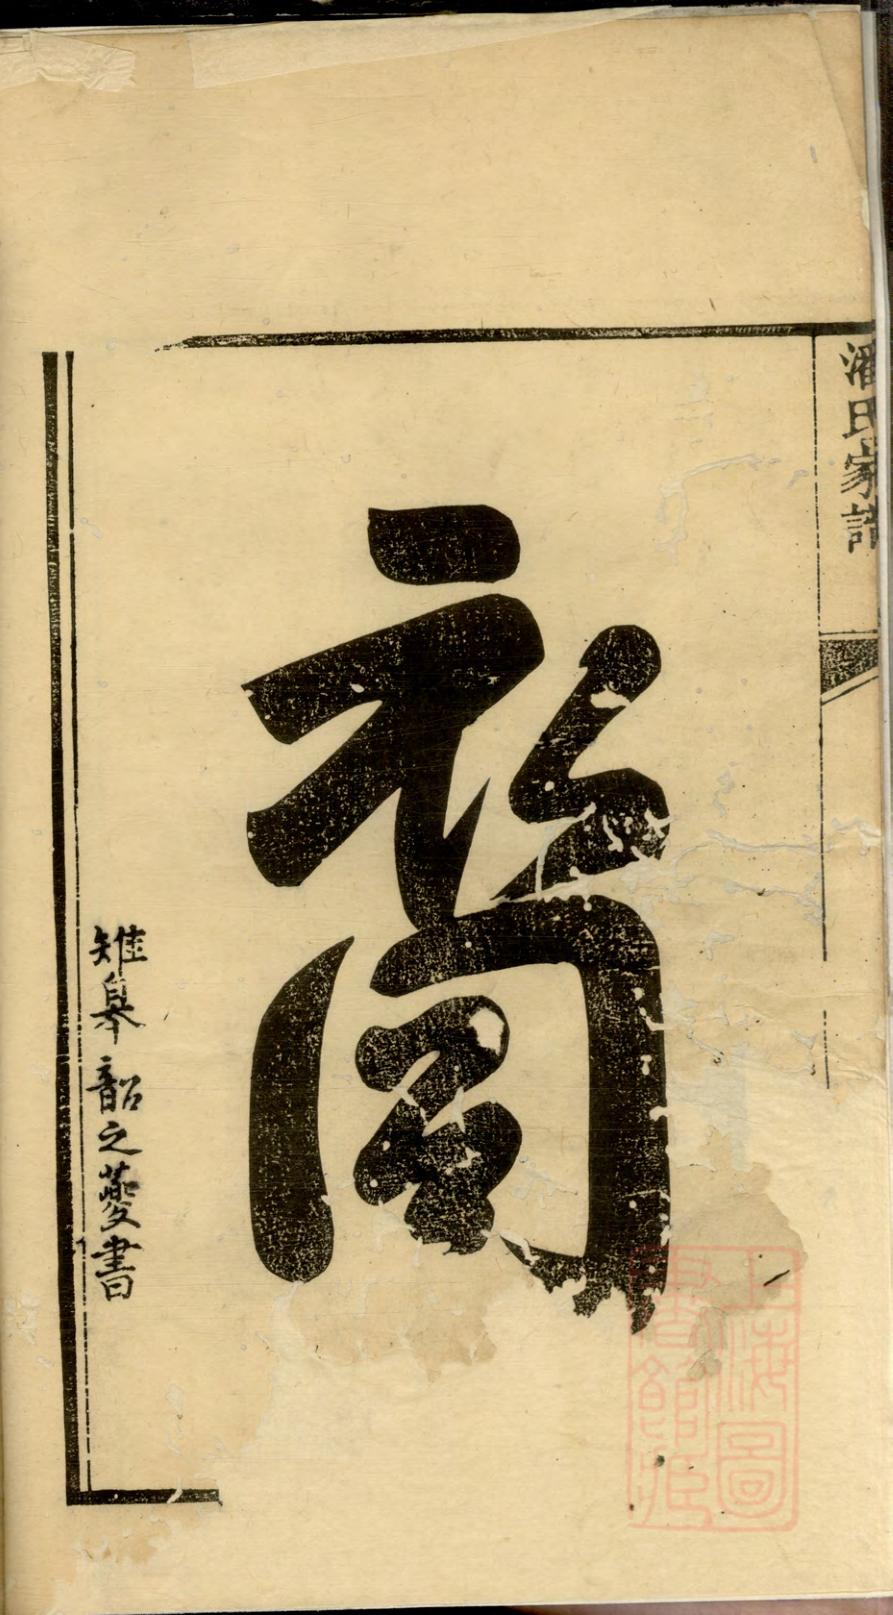 潘氏家譜
裔
雉皋韶之夔書
上海圖
書館藏